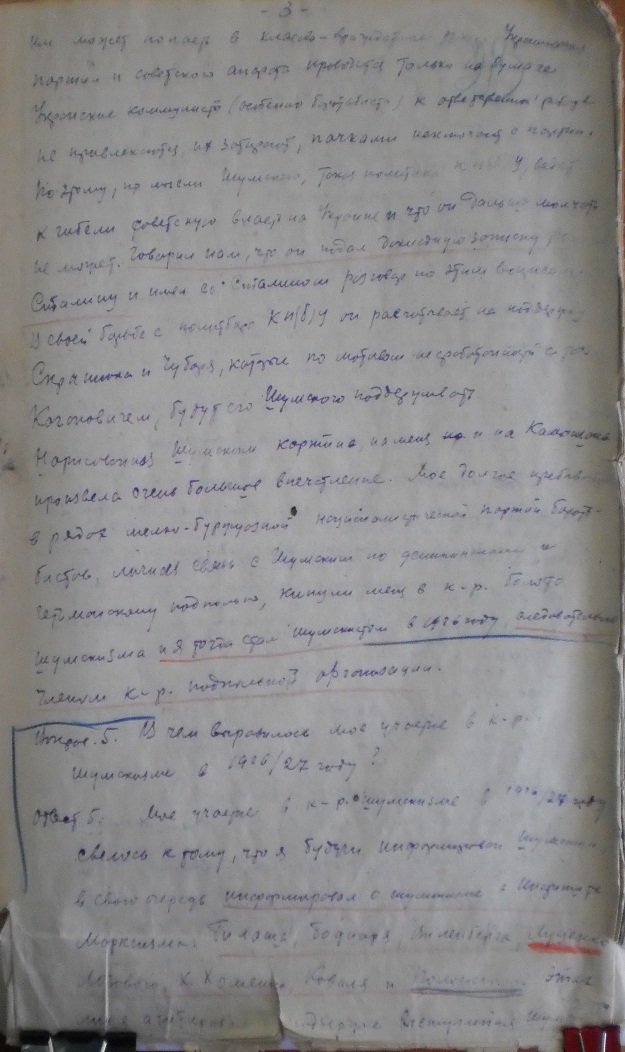 - 3 -
им может попасть в классово-враждебные руки. Украинизация
партии и советского аппарата проводится только на бумаге
Украинские коммунисты (особенно боротьбисты) к ответственной работе
не привлекаются, их затирают, пачками исключают с партии.
Поэтому, по мысли Шумского, такая политика КП(б)У, ведет
к гибели советскую власть на Украине и что он дальше молчать
не может. Говорил нам, что он подал докладную записку
Сталину и имел со Сталиным разговор по этим вопросам.
В своей борьбе с политбюро КП(б)У он расчитывает на поддержку
Скрыпника и Чубаря, которые по мотивам несработанности с
Кагоновичем, будут его Шумского поддерживать.
Нарисованная Шумским картина, на меня и на
произвела очень большое впечатление. Мое долгое пребывание
в рядах мелко-буржуазной националистической партии борот-
бистов, личная связь с Шумским по деникинскому и
гетманскому подполью, кинули меня в к-р. болото
шумскизма и я тогда стал шумскистом в 1926 году следовательно
членом к-р. подпольной организации.
Вопрос. 5. В чем выразилось мое участие в к-р.
шумскизме в 1926/27 году?
Ответ 5. Мое участие в к-р. шумскизме в 1926/27 году
свелось к тому, что я будучи информирован Шумским
в свою очередь информировал о шумскизме в Институте
Марксизма: Билаша, Боднара,
Лозового, К. Хоменко Коваля и